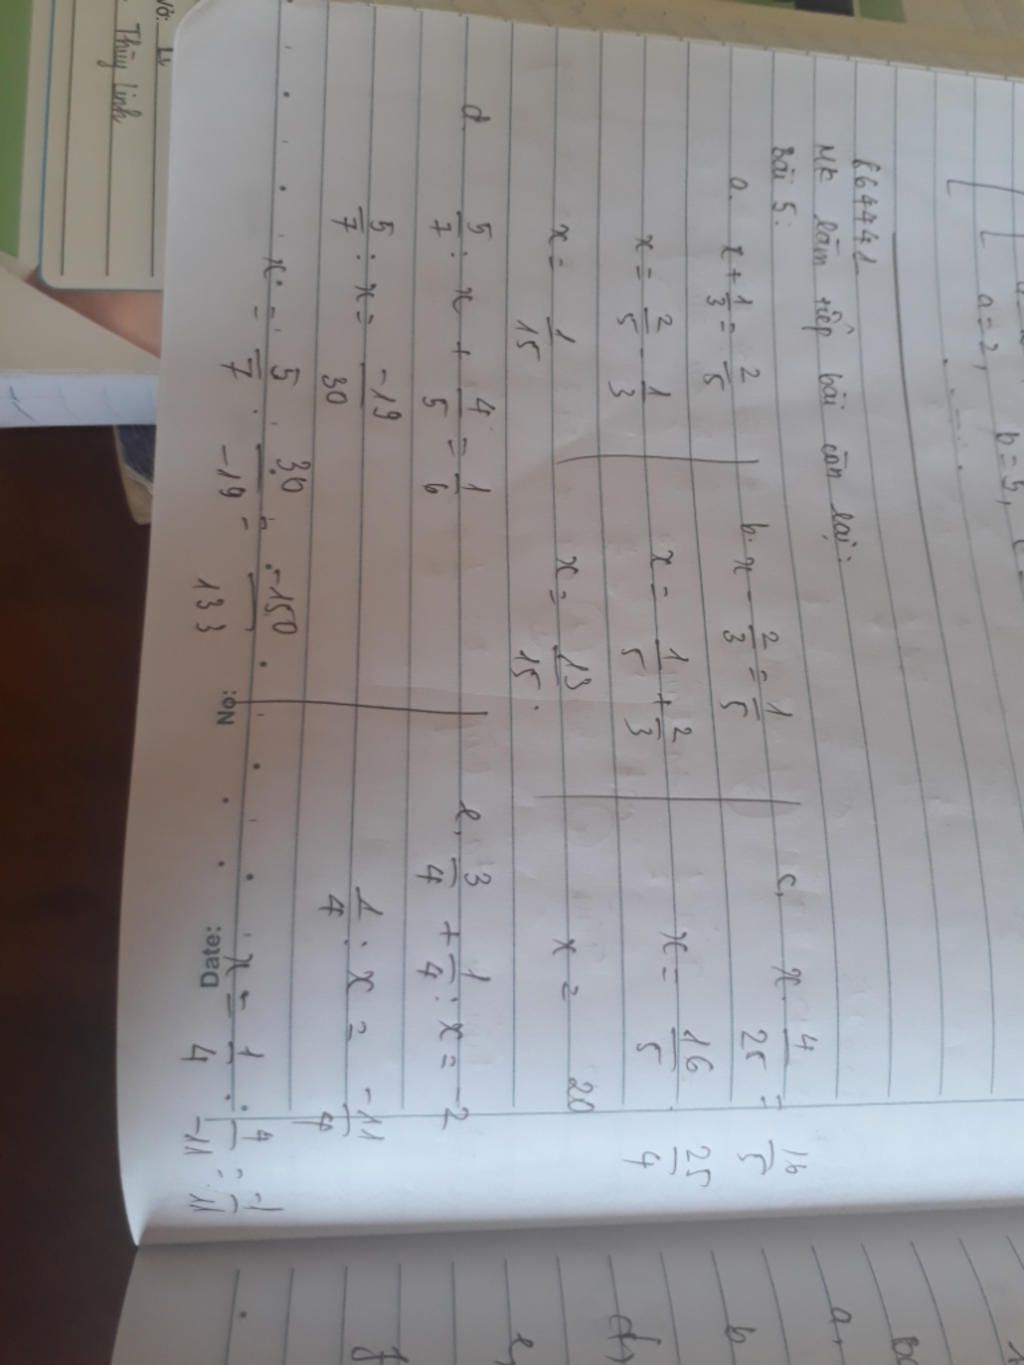 Thùy Linh
a = 2,
b = 5,
86444 1
Mk làm tiếp bài còn lại:
Bài 5:
a. x + 1/3 = 2/5
x = 2/5 - 1/3
x = 1/15
b. x - 2/3 = 1/5
x = 1/5 + 2/3
x = 13/15.
c, x . 4/25 = 16/5
x = 16/5 . 25/4
x = 20
d 5/7 : x + 4/5 = 1/6
5/7 : x = -19/30
x = 5/7 . 30/-19 = -150/133
e, 3/4 + 1/4 : x = -2
1/4 : x = -11/4
x = 1/4 . 4/-11 = -1/11
No:
Date:
a,
b
e,